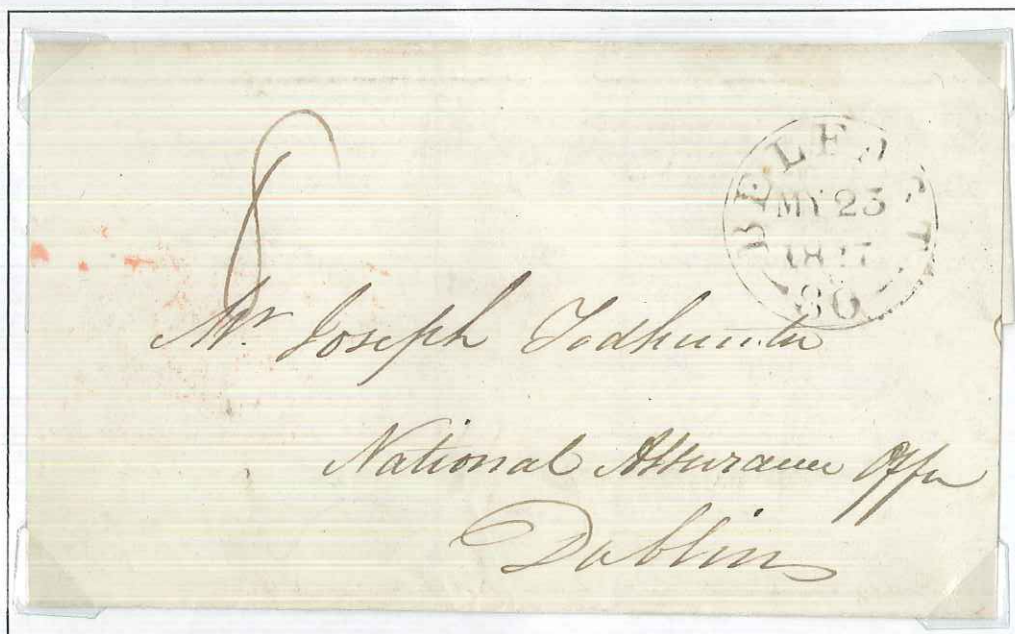 8
BELFAST
MY 23
80
Mr. Joseph Todhunter
National Assurance Offce
Dublin